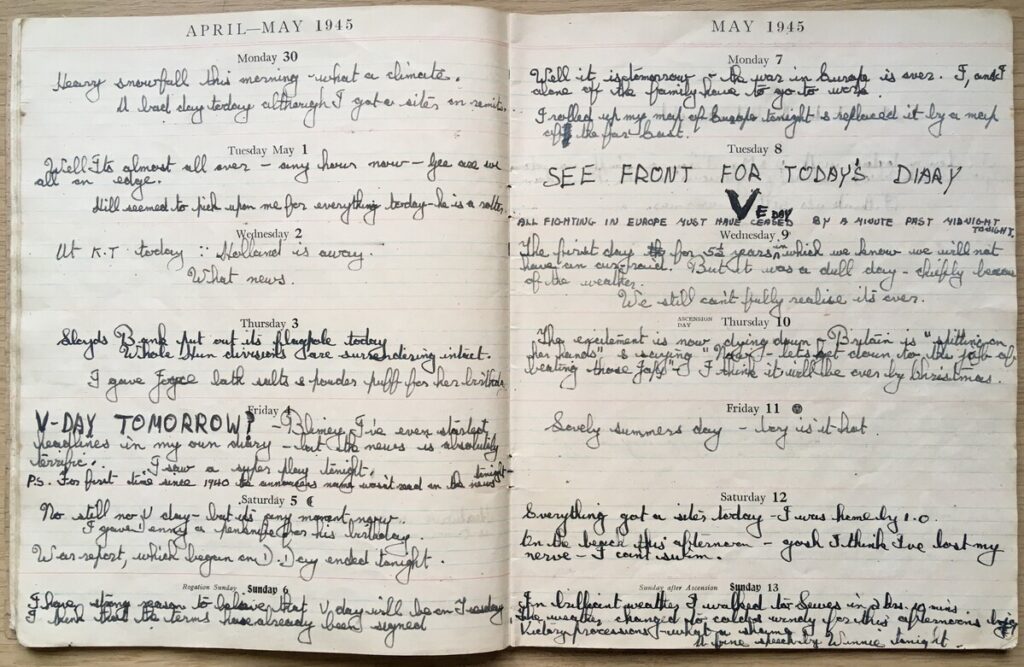 APRIL—MAY 1945
Monday 30
Heavy snowfall this morning - what a climate.
A bad day today although I got a sites on remits.
Tuesday May 1
Well It's almost all over - any hour now - Gee are we
all on edge.
Hill seemed to pick upon me for everything today - he is a rotter.
Wednesday 2
At K.T today :: Holland is away.
What news.
Thursday 3
Lloyds Bank put out its flagpole today
Whole Hun divisions are surrendering intact.
I gave Joyce bath salts & powder puff for her birthday
Friday 4
V-DAY TOMORROW? - Blimey I've even started
headlines in my own diary - but the news is absolutely
terrific. I saw a super play tonight.
P.S. For first time since 1940 the announcers name wasn't read on the news tonight-
Saturday 5
No still no V day - but its any moment now.
I gave Denny a penknife for his birthday.
War report, which began on D. Day ended tonight.
Rogation Sunday Sunday 6
I have strong reason to believe that V day will be on Tuesday
I think that the terms have already been signed
MAY 1945
Monday 7
Well it is tomorrow - the war in Europe is over. I, and I
alone of the family have to go to work.
I rolled up my map of Europe tonight & replaced it by a map
of the far East.
Tuesday 8
SEE FRONT FOR TODAY'S DIARY
VE DAY
ALL FIGHTING IN EUROPE MUST HAVE CEASED BY A MINUTE PAST MIDNIGHT
TONIGHT.
Wednesday 9
The first day for 5½ years in which we know we will not
have an air raid. But it was a dull day - chiefly because
of the weather.
We still can't fully realise its over.
ASCENSION DAY Thursday 10
The excitement is now dying down & Britain is "spitting on
her hands" & saying "Now - lets get down to the job of
beating those Japs" - I think it will be over by Christmas.
Friday 11
Lovely summers day - boy is it hot.
Saturday 12
Everything got a sites today - I was home by 1.0.
On the beach this afternoon - gosh I think I've lost my
nerve - I cant swim.
Sunday after Ascension Sunday 13
In brilliant weather I walked to Lewes in 2 hrs. 10 mins.
The weather changed to cold & windy for this afternoons big
Victory processions - what a shame.
A fine speech by Winnie tonight.